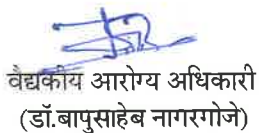 वैद्यकीय आरोग्य अधिकारी
(डॉ.बापुसाहेब नागरगोजे)